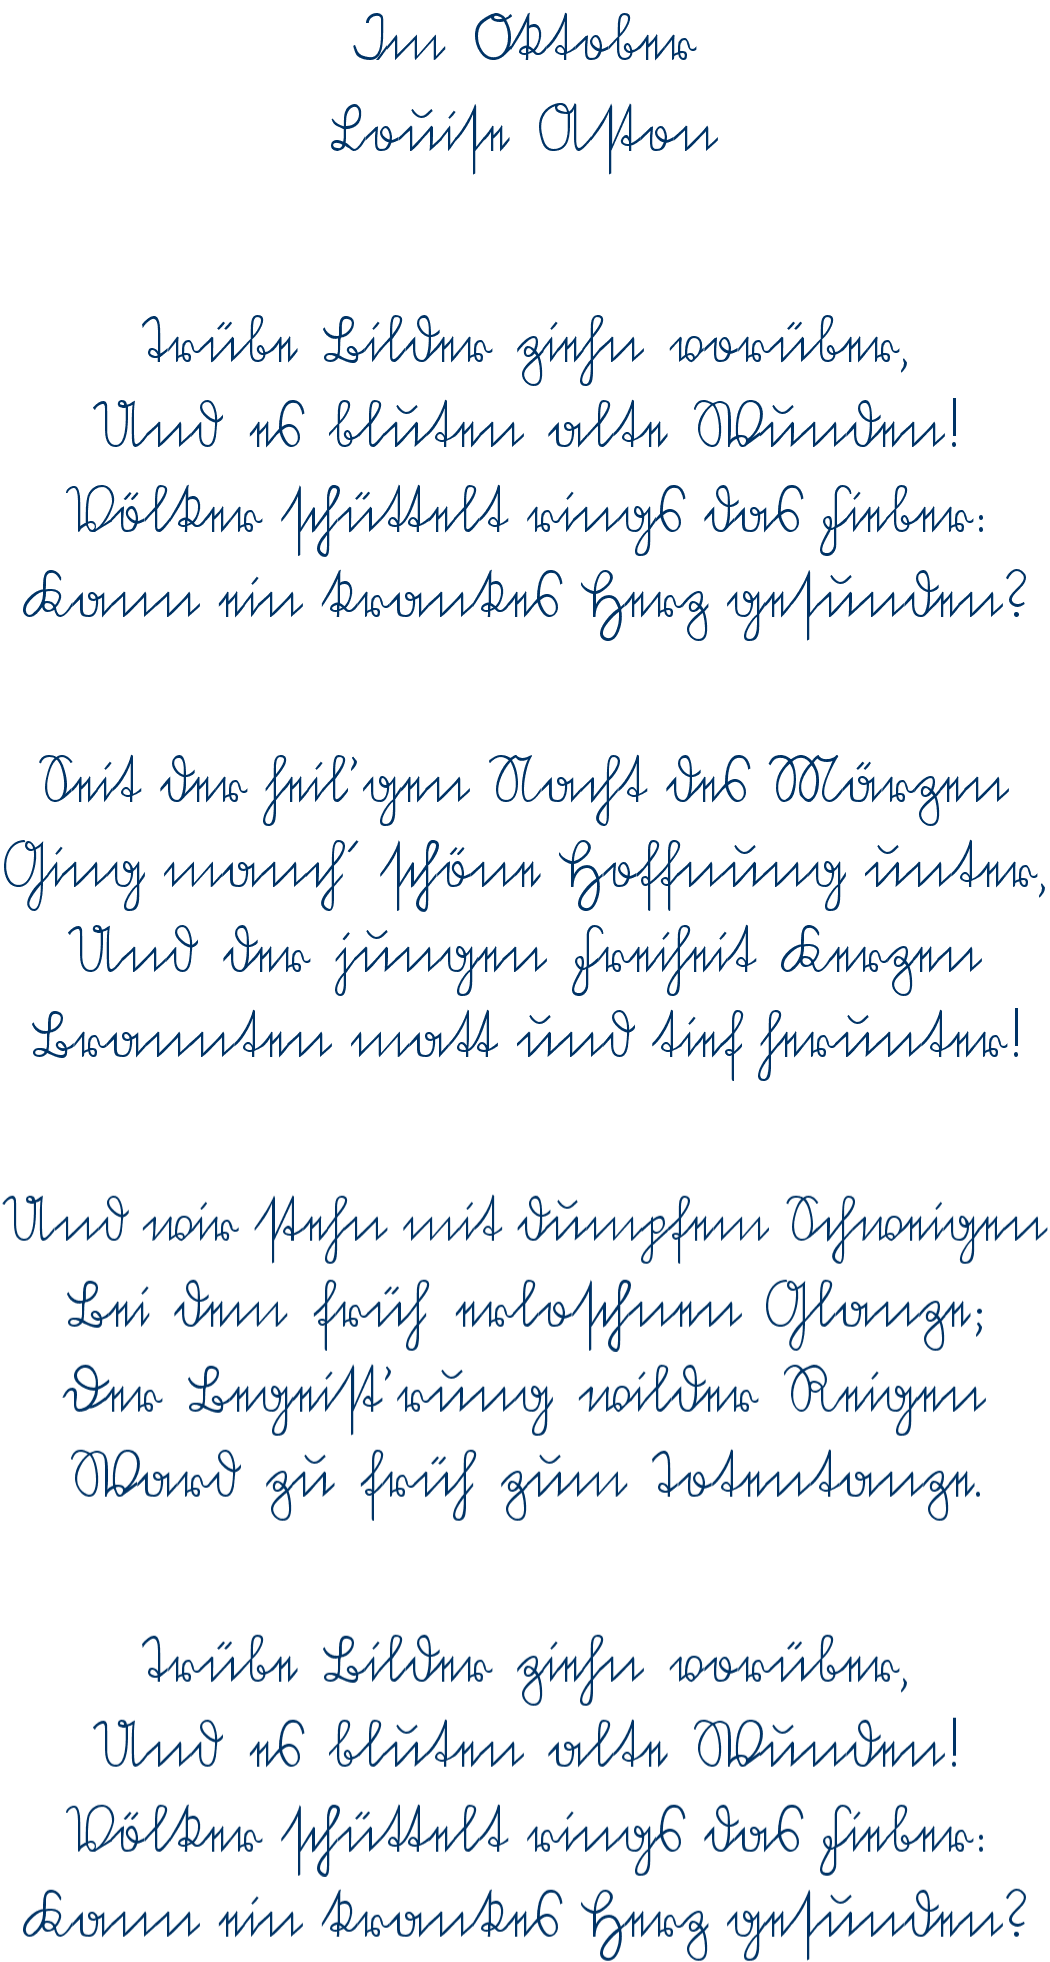 Im Oktober
Louise Aston
Trübe Bilder ziehn vorüber,
Und es bluten alte Wunden!
Völker schüttelt rings das Fieber:
Kann ein krankes Herz gesunden?
Seit der heil'gen Nacht des Märzen
Ging manch´ schöne Hoffnung unter,
Und der jungen Freiheit Kerzen
Brannten matt und tief herunter!
Und wir stehn mit dumpfem Schweigen
Bei dem früh erloschnen Glanze;
Der Begeist'rung wilder Reigen
Ward zu früh zum Totentanze.
Trübe Bilder ziehn vorüber,
Und es bluten alte Wunden!
Völker schüttelt rings das Fieber:
Kann ein krankes Herz gesunden?